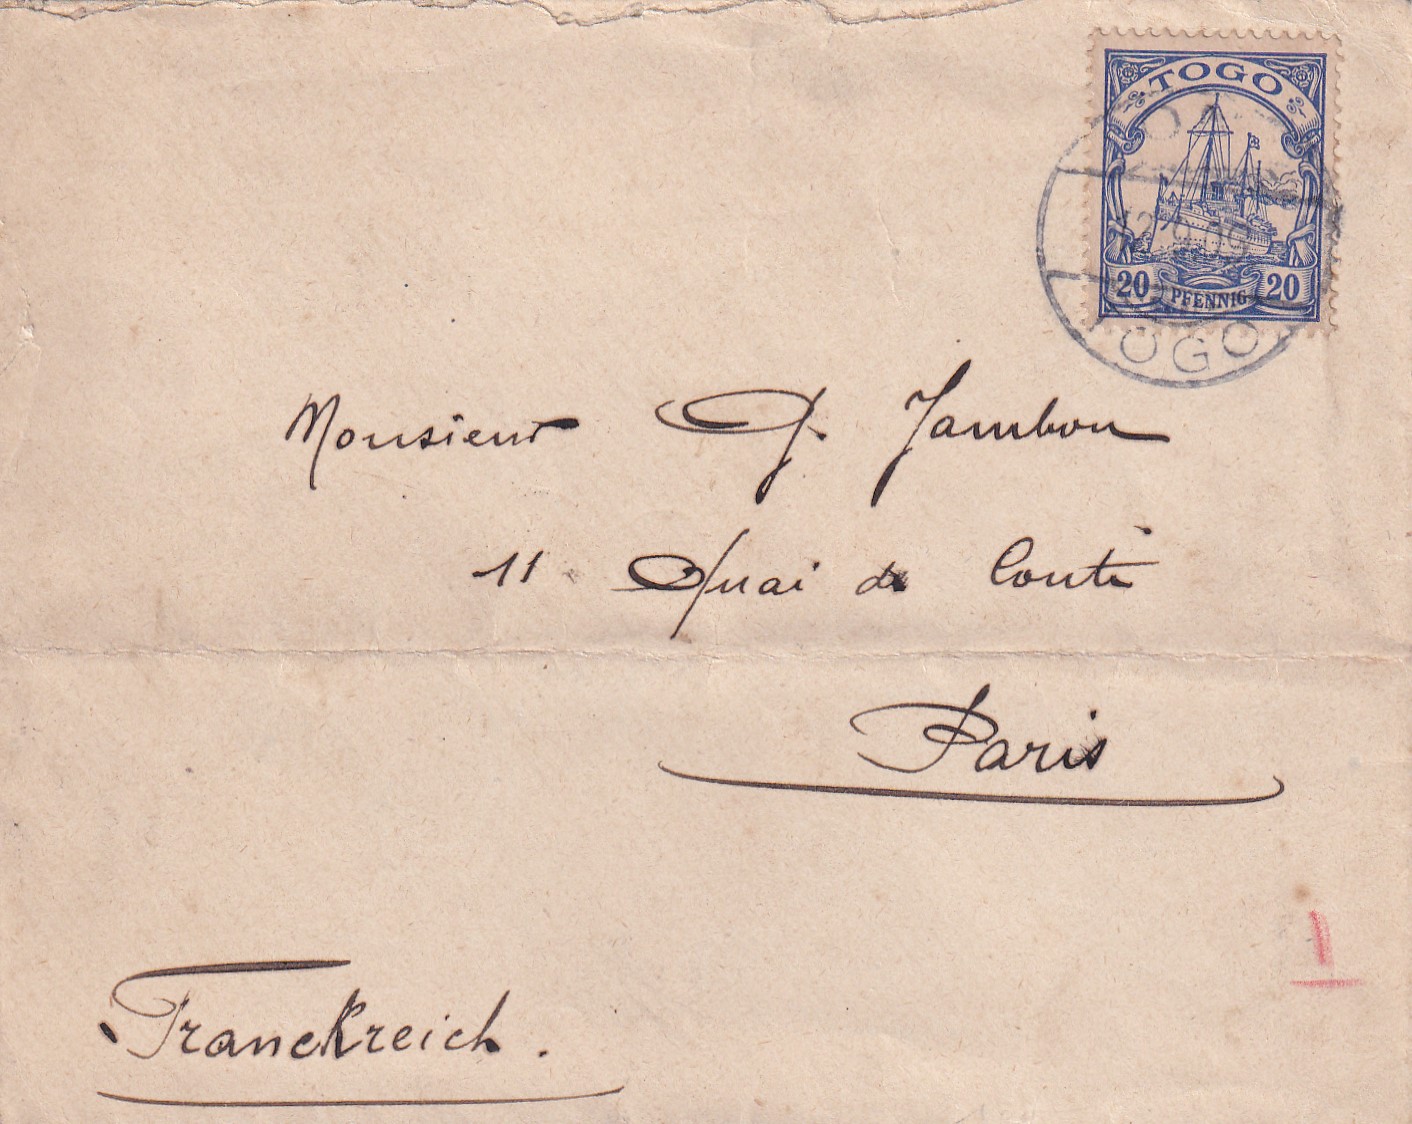 TOGO
12 09
20 PFENNIG 20
TOGO
Monsieur G. Jambon
11 Quai de Conti
Paris
Franckreich.
1